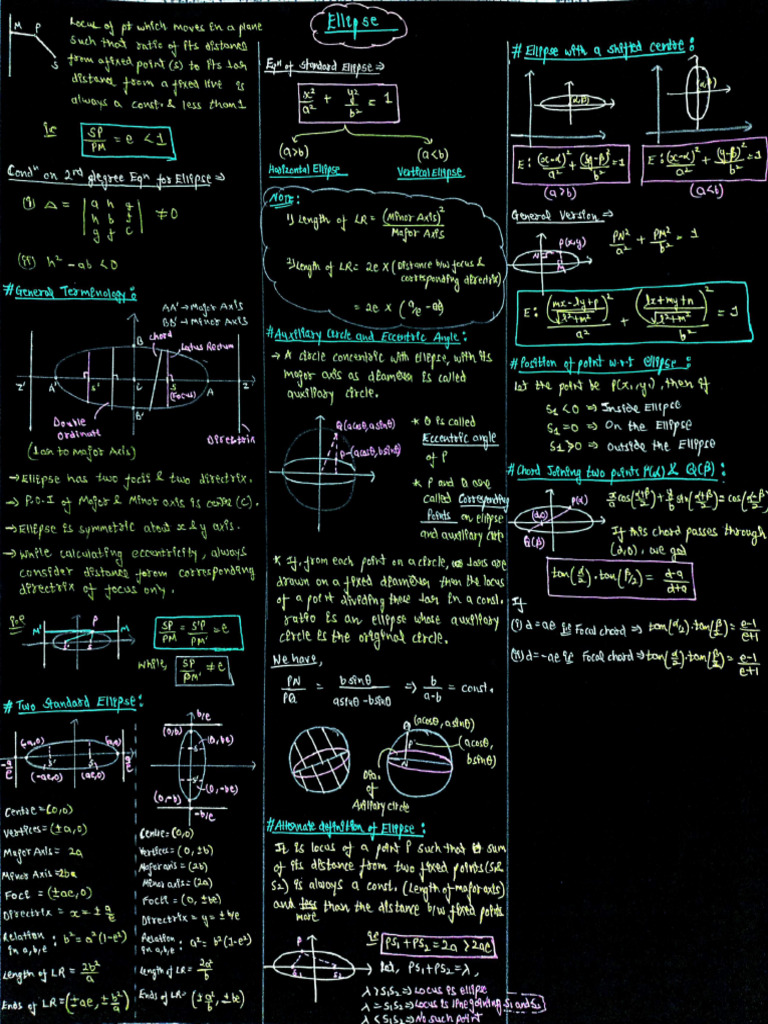 Ellipse
M P
S
Locus of pt which moves in a plane
such that ratio of its distance
from a fixed point (s) to its ⊥ar
distance from a fixed line is
always a const. & less than 1
ie SP/PM = e < 1
Condⁿ on 2nd degree Eqn for Ellipse ⇒
(i) Δ = | a h g |
| h b f | ≠ 0
| g f c |
(ii) h² - ab < 0
# General Terminology:
AA' → Major Axis
BB' → Minor Axis
B chord
Latus Rectum
Z' A' S' C S A Z
(Focus)
B'
Double
Ordinate
Directrix
(⊥ar to Major Axis)
→ Ellipse has two focii & two directrix.
→ P.O.I of Major & Minor axis is centre (C).
→ Ellipse is symmetric about x & y axis.
→ While calculating eccentricity, always
consider distance from corresponding
directrix of focus only.
M' P M
SP/PM = S'P/PM' = e
while, SP/PM' ≠ e
# Two Standard Ellipse:
(-a,0) (a,0)
-a/e S' S a/e
(-ae,0) (ae,0)
Centre = (0,0)
Vertices = (±a,0)
Major Axis = 2a
Minor Axis = 2b
Foci = (±ae,0)
Directrix = x = ± a/e
Relation in a,b,e : b² = a²(1-e²)
Length of LR = 2b²/a
Ends of LR = (±ae, ± b²/a)
b/e
(0,b)
(0,be)
S
S'
(0,-be)
(0,-b)
-b/e
Centre = (0,0)
Vertices = (0,±b)
Major axis = (2b)
Minor axis = (2a)
Focii = (0,±be)
Directrix = y = ± b/e
Relation in a,b,e : a² = b²(1-e²)
Length of LR = 2a²/b
Ends of LR = (± a²/b, ± be)
Eqn of Standard Ellipse ⇒
x²/a² + y²/b² = 1
(a>b) (a<b)
Horizontal Ellipse Vertical Ellipse
Note:
1) Length of LR = (Minor Axis)²/Major Axis
2) Length of LR = 2e × (Distance b/w focus & corresponding directrix)
= 2e × (a/e - ae)
# Auxiliary Circle and Eccentric Angle:
→ A circle concentric with ellipse, with its
major axis as diameter is called
auxiliary circle.
Q(acosθ, asinθ)
P→(acosθ, bsinθ)
* θ is called
Eccentric angle
of P
* P and Q are
called Corresponding
Points on ellipse
and auxiliary circle
* If, from each point on a circle, ⊥ars are
drawn on a fixed diameter then the locus
of a point dividing these ⊥ar in a const.
ratio is an ellipse whose auxiliary
circle is the original circle.
We have,
PN/PQ = bsinθ/(asinθ-bsinθ) ⇒ b/(a-b) = const.
Q (acosθ, asinθ)
P (acosθ, bsinθ)
N
Dia. of
Auxiliary circle
# Alternate definition of Ellipse:
It is locus of a point P such that sum
of its distance from two fixed points (S₁ &
S₂) is always a const. (Length of major axis)
and less than the distance b/w fixed points
more
P
S₂ S₁
ie PS₁ + PS₂ = 2a > 2ae
Let, PS₁ + PS₂ = λ,
λ > S₁S₂ ⇒ Locus is ellipse
λ = S₁S₂ ⇒ Locus is line joining S₁ and S₂
λ < S₁S₂ ⇒ No such point
# Ellipse with a shifted centre:
(α,β) (α,β)
E: (x-α)²/a² + (y-β)²/b² = 1
(a>b)
E: (x-α)²/a² + (y-β)²/b² = 1
(a<b)
General Version ⇒
P(x,y)
N M
PN²/a² + PM²/b² = 1
E: ((mx-ly+p)/√(l²+m²))²/a² + ((lx+my+n)/√(l²+m²))²/b² = 1
# Position of point w.r.t ellipse:
Let the point be P(x₁,y₁), then if
S₁ < 0 ⇒ Inside Ellipse
S₁ = 0 ⇒ On the Ellipse
S₁ > 0 ⇒ outside the Ellipse
# Chord Joining two points P(α) & Q(β):
P(α)
(d,0)
Q(β)
x/a cos((α+β)/2) + y/b sin((α+β)/2) = cos((α-β)/2)
If this chord passes through
(d,0), we get
tan(α/2).tan(β/2) = (d-a)/(d+a)
If
(i) d = ae ie Focal chord ⇒ tan(α/2).tan(β/2) = (e-1)/(e+1)
(ii) d = -ae ie Focal chord ⇒ tan(α/2).tan(β/2) = (e-1)/(e+1)